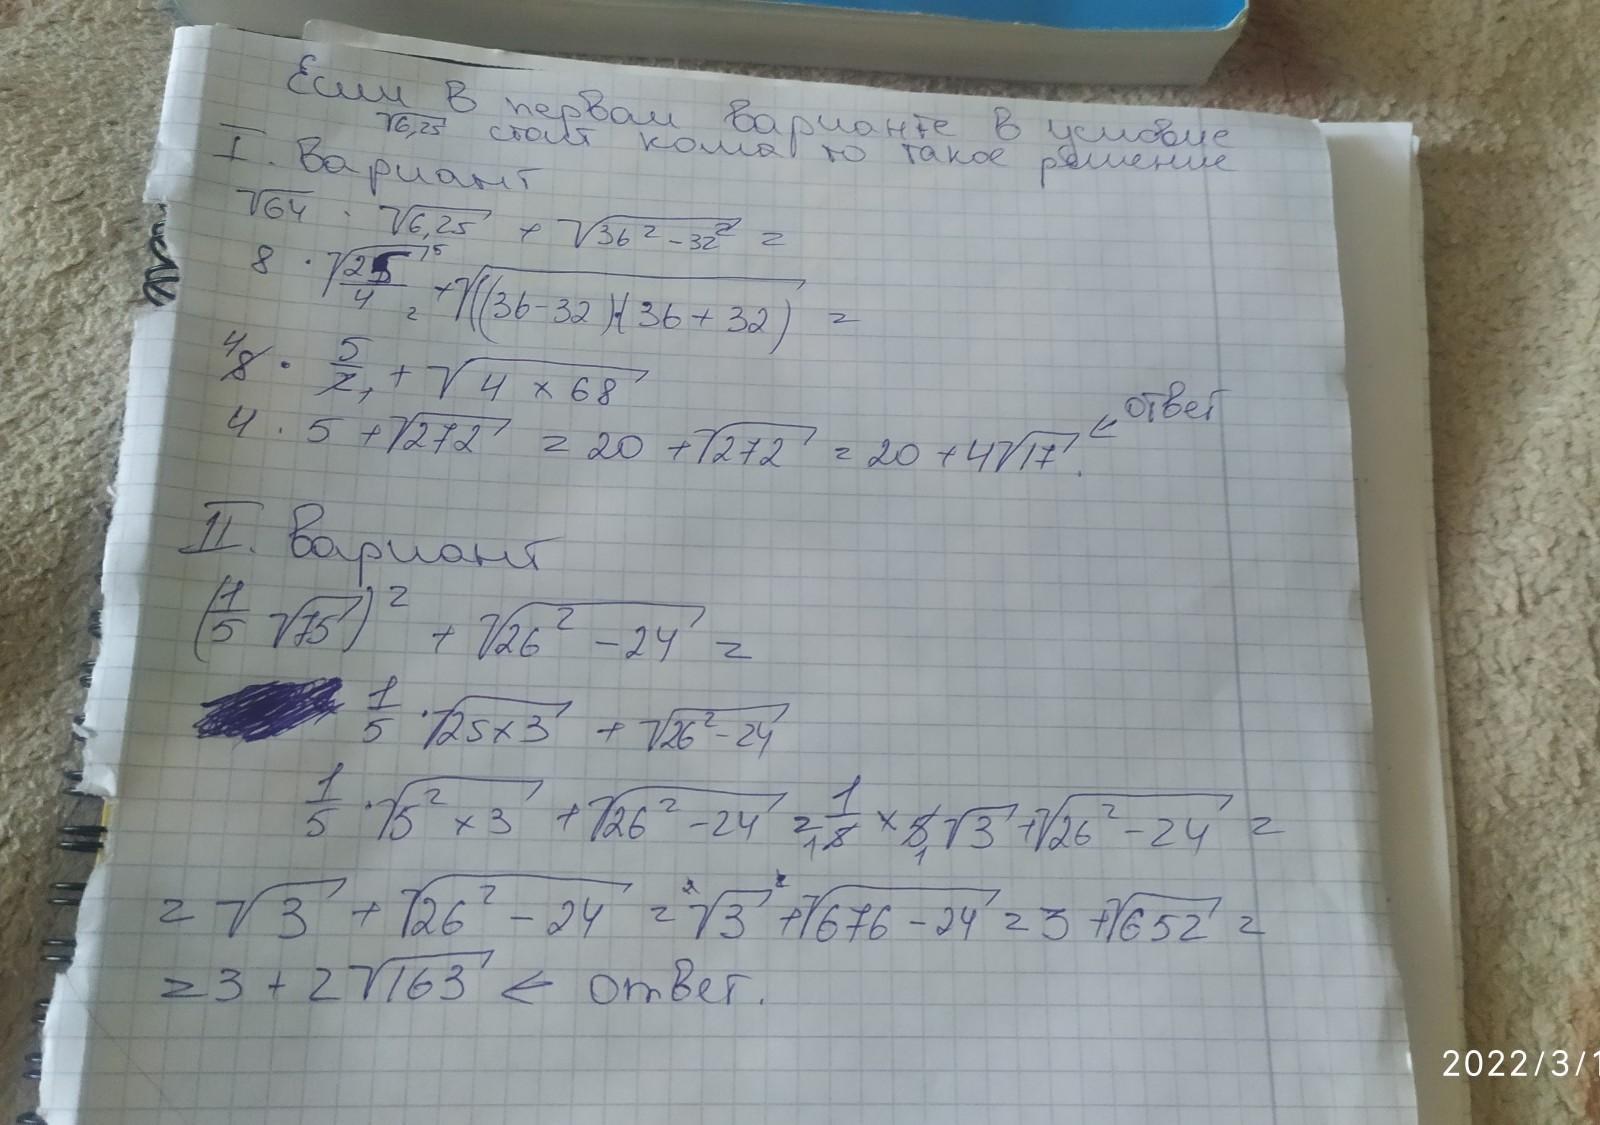 Если в первом варианте в условие
√6,25 стоит кома то такое решение
I. Вариант
√64 · √6,25 + √36² - 32² =
8 · √25/4 ⁵₂ + √((36-32)(36+32) =
⁴8 · 5/2₁ + √4 × 68
4 · 5 + √272 = 20 + √272 = 20 + 4√17. ← ответ
II. Вариант
(1/5 √75)² + √26² - 24 =
1/5 · √25×3 + √26² - 24
1/5 · √5² × 3 + √26² - 24 = 1/5₁ × 5₁√3 + √26² - 24 =
= √3 + √26² - 24 = √3² + √676 - 24 = 3 + √652 =
= 3 + 2√163 ← ответ.
2022/3/1